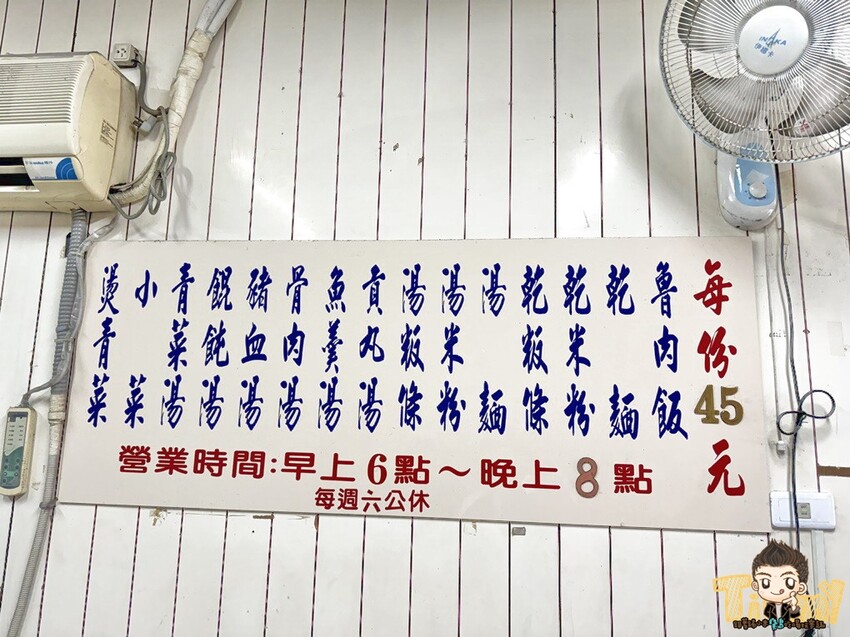 每份45元
魯肉飯
乾麵
乾米粉
乾粄條
湯麵
湯米粉
湯粄條
貢丸湯
魚羹湯
骨肉湯
豬血湯
餛飩湯
青菜湯
小菜
燙青菜
營業時間:早上6點～晚上8點
每週六公休